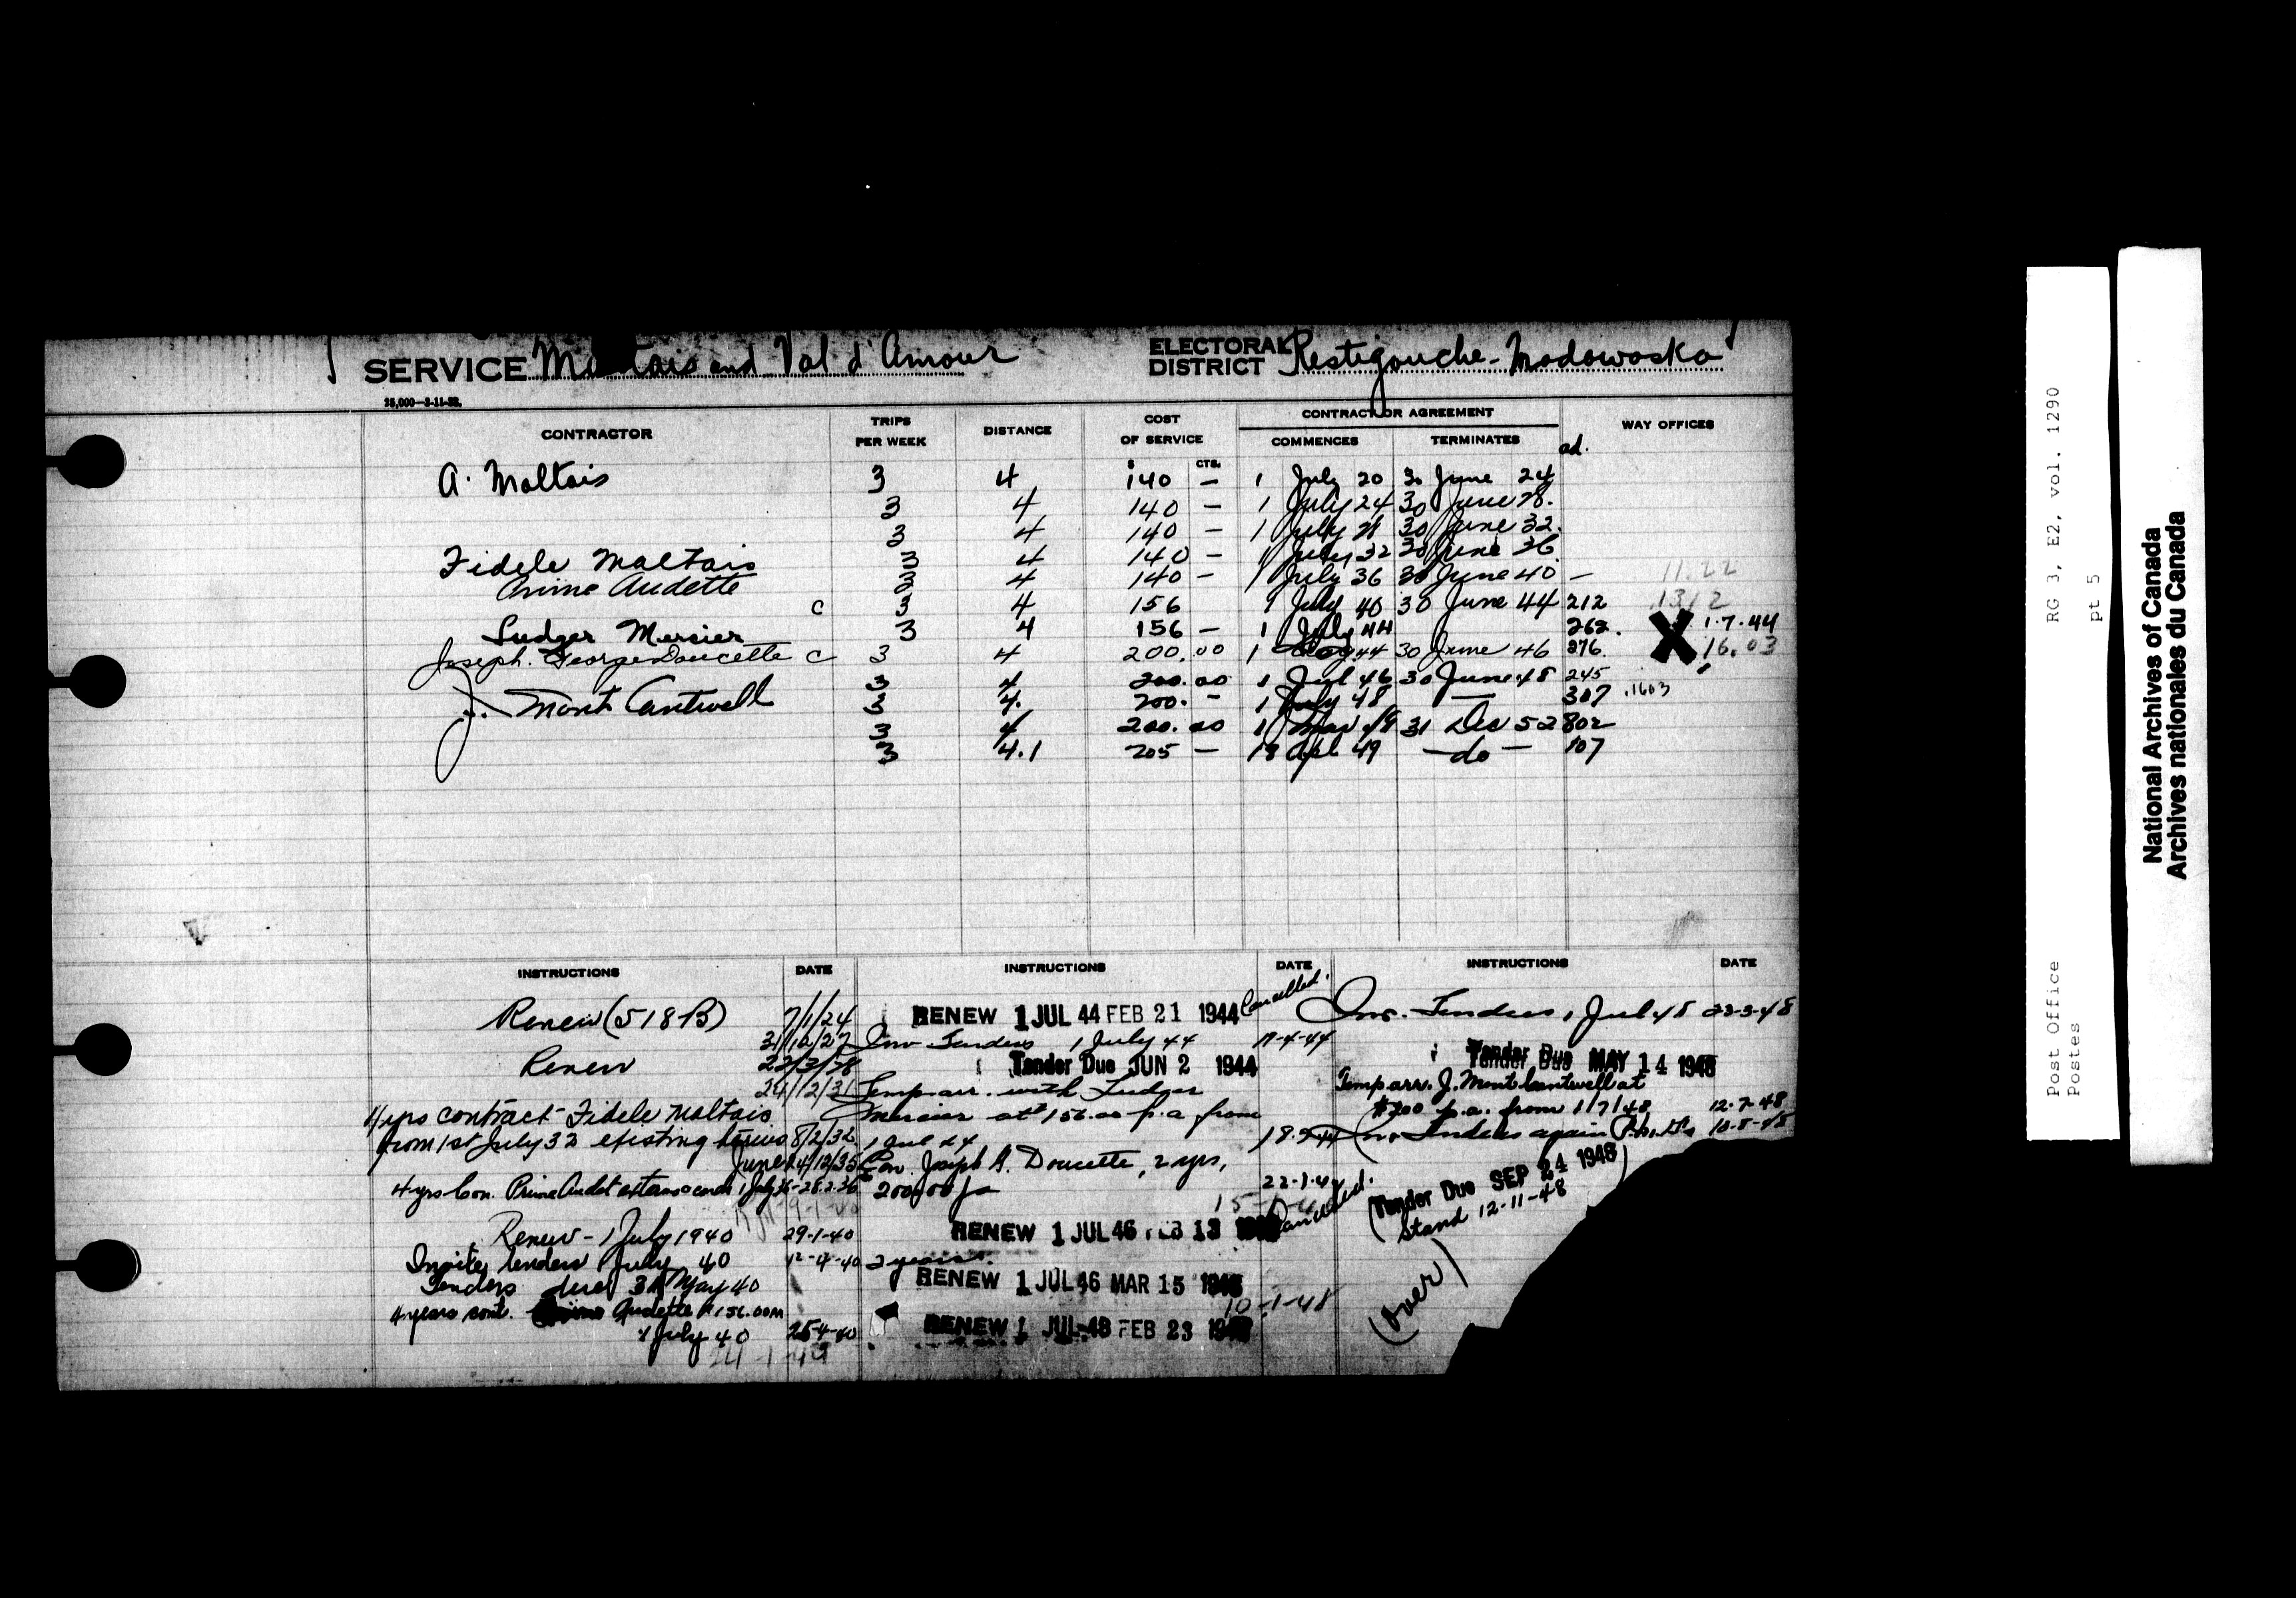 SERVICE Maltais and Val d'Amour ELECTORAL DISTRICT Restigouche-Madawaska
25,000-3-11-22.
CONTRACTOR TRIPS PER WEEK DISTANCE COST OF SERVICE CONTRACT OR AGREEMENT WAY OFFICES
COMMENCES TERMINATES ad.
$ CTS.
A. Maltais 3 4 140 — 1 July 20 30 June 24
3 4 140 — 1 July 24 30 June 28.
3 4 140 — 1 July 28 30 June 32.
Fidele Maltais 3 4 140 — 1 July 32 30 June 36
Prime Audette 3 4 140 — 1 July 36 30 June 40 — 11.22
c 3 4 156 1 July 40 30 June 44 212 1312
Ludger Mercier 3 4 156 — 1 July 44 262. X 1.7.44
Joseph. George Doucette c 3 4 200.00 1 44 30 June 46 276. 16.03
3 4 200.00 1 Jul 46 30 June 48 245
J. Mont Cantwell 3 4. 200. — 1 July 48 — 307 .1603
3 4 200.00 1 Mar 49 31 Dec 52 802
3 4.1 205 — 18 Apl 49 — do — 107
INSTRUCTIONS DATE INSTRUCTIONS DATE INSTRUCTIONS DATE
Renew (518B) 7/1/24
31/12/27
Renew 22/3/28
24/12/31
4 yrs contract Fidele Maltais
from 1st July 32 existing terms 8/2/32
June 24/12/35
4 yrs Con. Prime Audet 1 July 36 - 28.2.36
Renew - 1 July 1940 29-1-40
Invite tenders July 40 12-4-40
Tenders due 31 May 40
4 years cont. Audette 156.00
1 July 40 25-4-40
24-1-44
RENEW 1 JUL 44 FEB 21 1944 Cancelled.
Inv Tenders 1 July 44 17-4-44
Tender Due JUN 2 1944
Temp arr. with Ludger
Mercier at 156.00 p.a from
1 44
Con. Joseph G. Doucette, 2 yrs,
200.00 22-1-4
RENEW 1 JUL 46 FEB 13 Cancelled.
2 years.
RENEW 1 JUL 46 MAR 15
10-1-48
RENEW 1 JUL 48 FEB 23
Inv. Tenders 1 Jul 48 22-3-48
Tender Due MAY 14 1948
Temp arr. J. Mont Cantwell at
$200 p.a. from 1/7/48 12-7-48
Inv Tenders again 10-8-48
Tender Due SEP 24 1948
Stand 12-11-48
(over)
Post Office RG 3, E2, vol. 1290
Postes pt 5
National Archives of Canada
Archives nationales du Canada